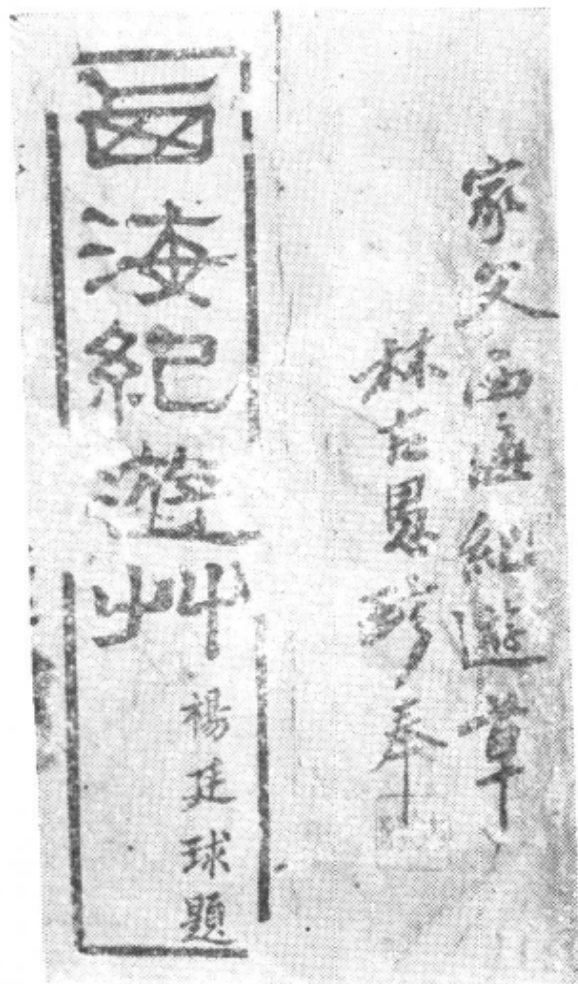 家父西海紀遊草
林古愚珍奉
西海紀遊艸
楊廷球題